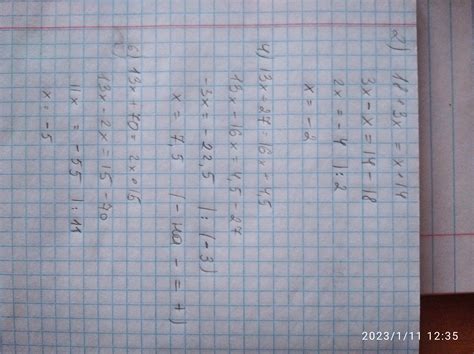 2) 18+3x = x+14
3x-x=14-18
2x = -4 |:2
x = -2
4) 13x+27=16x+4,5
13x-16x=4,5-27
-3x=-22,5 |:(-3)
x = 7,5 (- на - = +)
6) 13x+70=2x+15
13x-2x=15-70
11x = -55 |:11
x=-5
2023/1/11 12:35